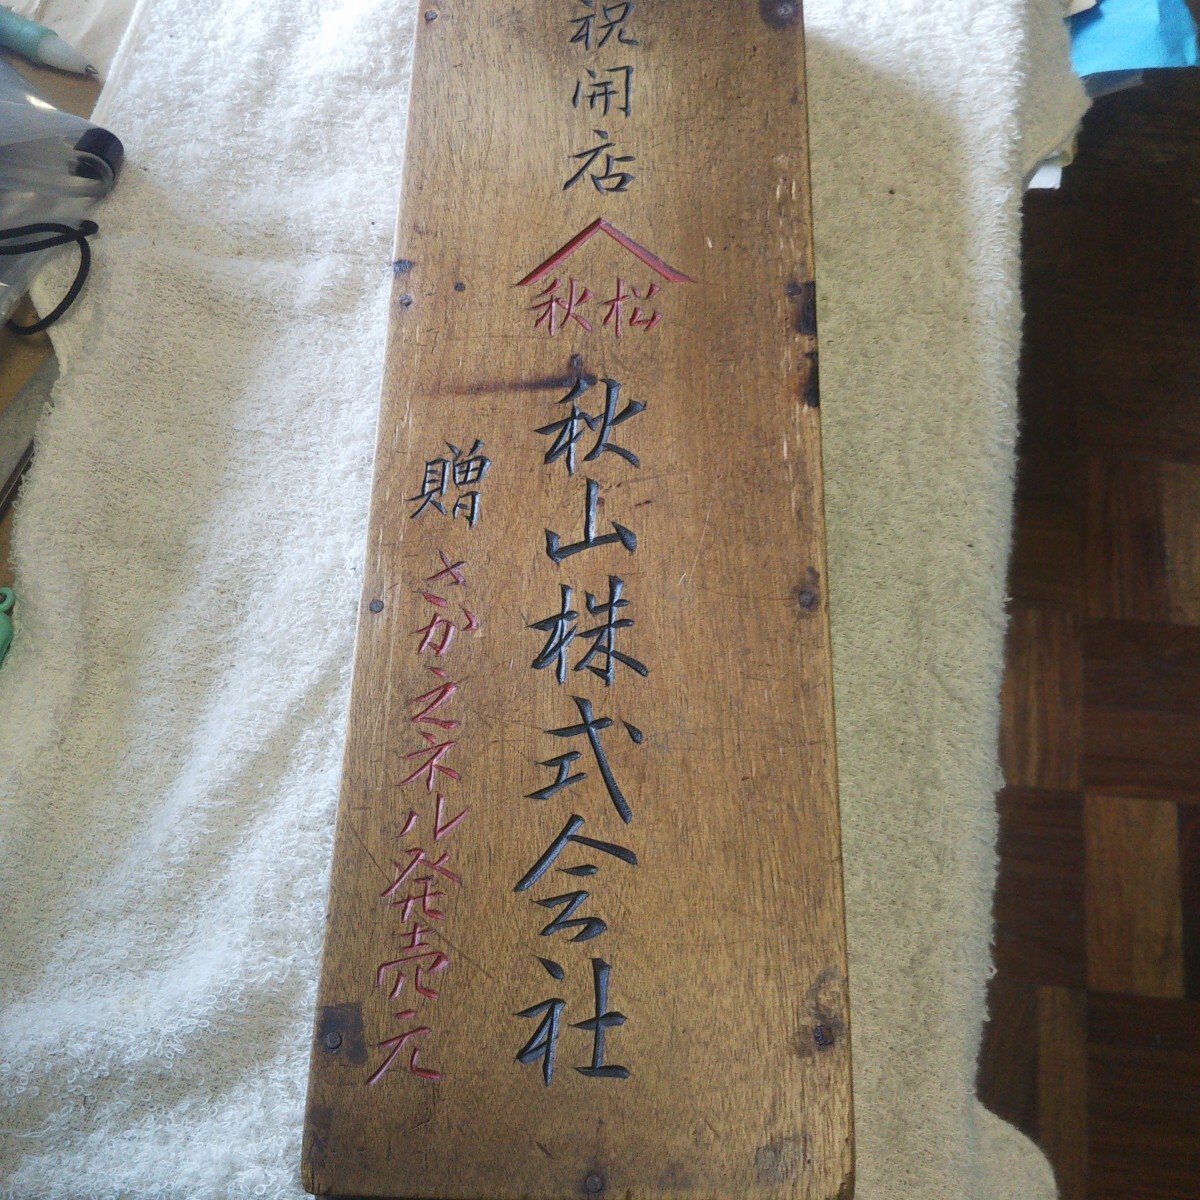 祝開店
秋松
秋山株式会社
贈 さかえネル発売元